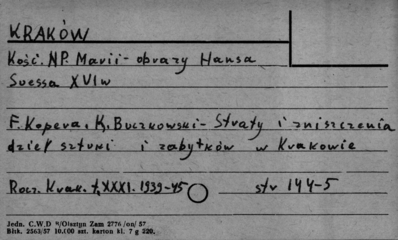 KRAKÓW
Kość. NP. Marii - obrazy Hansa
Suessa XVI w
F. Kopera, K. Buczkowski - Straty i zniszczenia
dzieł sztuki i zabytków w Krakowie
Rocz. Krak. t. XXXI. 1939-45 str 144-5
Jedn. C.W.D Olsztyn Zam 2776 /on/ 57
Bhk. 2563/57 10.000 szt. karton kl. 7 g 220.